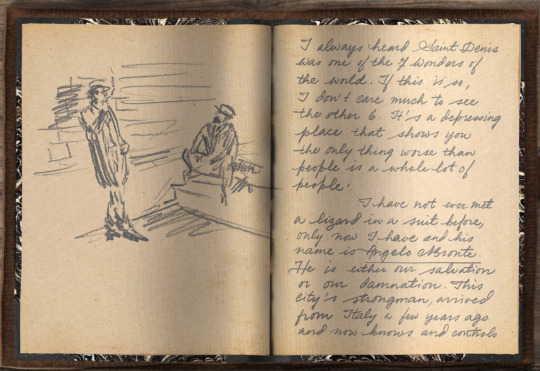 I always heard Saint Denis
was one of the 7 wonders of
the world. If this is so,
I don't care much to see
the other 6. It's a depressing
place that shows you
the only thing worse than
people is a whole lot of
people.
I have not ever met
a lizard in a suit before,
only now I have and his
name is Angelo Bronte.
He is either our salvation
or our damnation. This
city's strongman, arrived
from Italy a few years ago
and now knows and controls